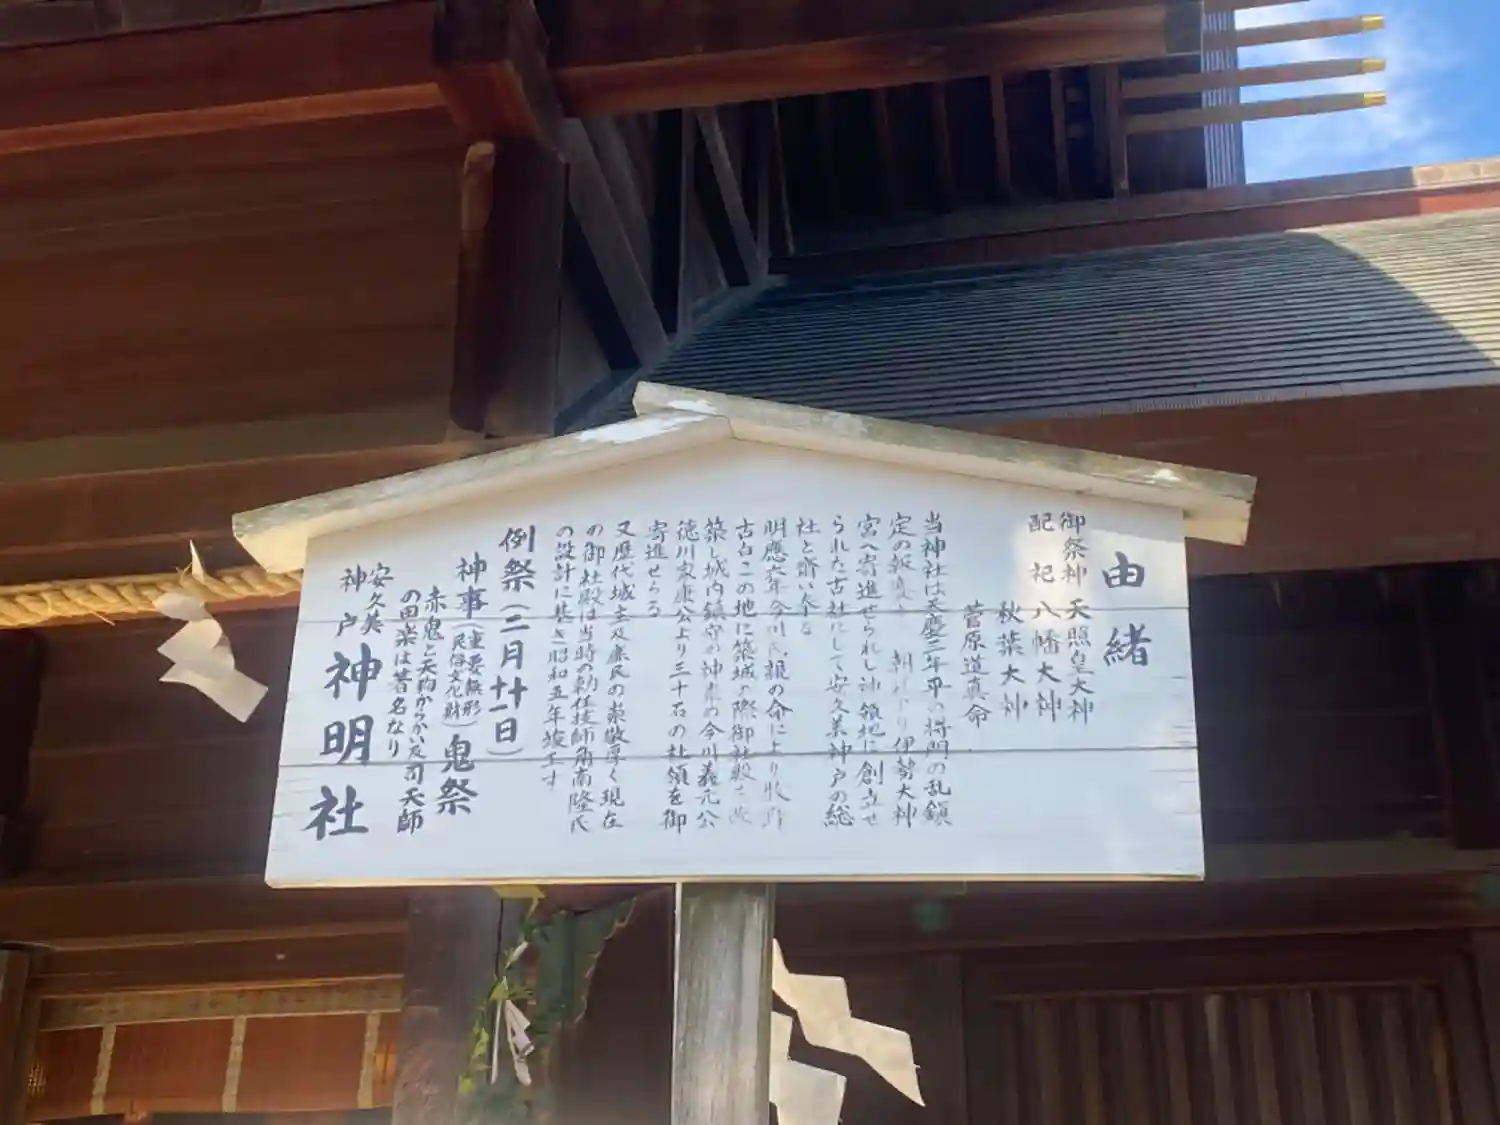 由緒
御祭神 天照皇大神
配祀 八幡大神
秋葉大神
菅原道真命
当神社は天慶三年平の将門の乱鎮
定の報賽 朝 より伊勢大神
宮へ寄進せられし神領地に創立せ
られた古社にして安久美神戸の総
社と齋い奉る
明應六年今川氏親の命により牧野
古白この地に築城の際御社殿を改
築し城内鎮守の神 の今川義元公
徳川家康公より三十石の社領を御
寄進せらる
又歴代城主及庶民の崇敬厚く現在
の御社殿は当時の勅任技師角南隆氏
の設計に基き昭和五年竣工す
例祭(二月十一日)
神事(重要無形民俗文化財)鬼祭
赤鬼と天狗からかい及司天師
の田楽は著名なり
安久美神戸神明社